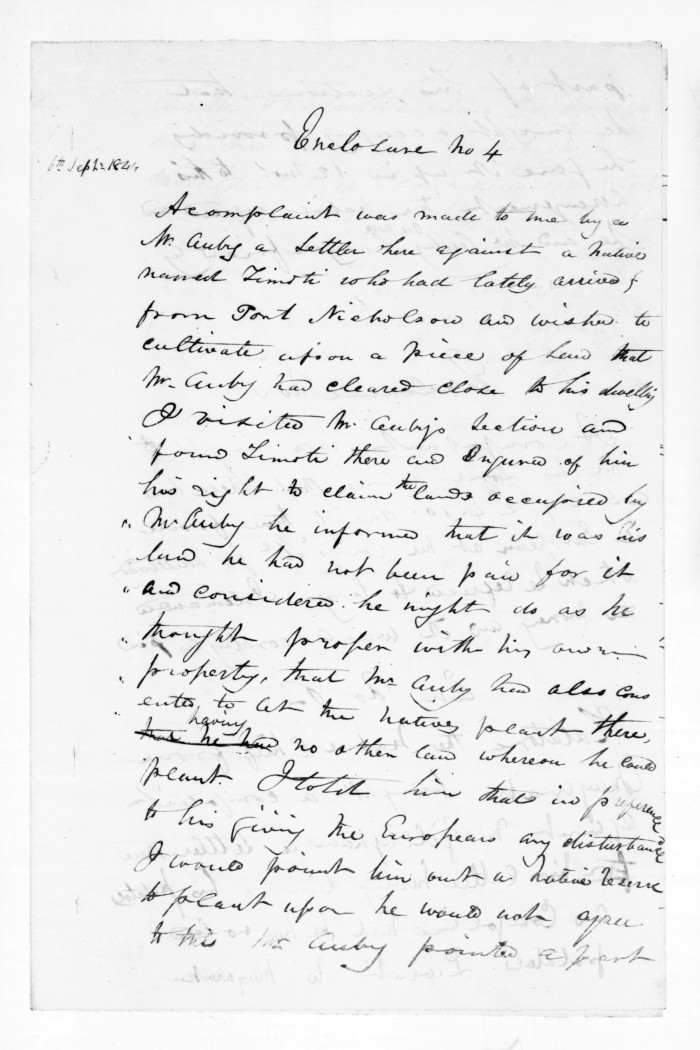 Enclosure no 4
6th Septr 1844
A complaint was made to me by a
Mr. Auby a Settler here against a Native
named Timoti who had lately arrived
from Port Nicholson and wished to
cultivate upon a piece of land that
Mr. Auby had cleared close to his dwelling
I visited Mr. Aubys Section and
found Timoti there and Inquired of him
his right to claim the lands occupied by
Mr Auby he informed that it was his
land he had not been paid for it
and considered he might do as he
thought proper with his own
property, that Mr Auby had also cons
ented to let the natives plant there,
having
that he had no other land whereon he could
plant. I told him that in preference
to his giving the Europeans any disturbance
I would point him out a native reserve
to plant upon he would not agree
to this Mr Auby pointed a part